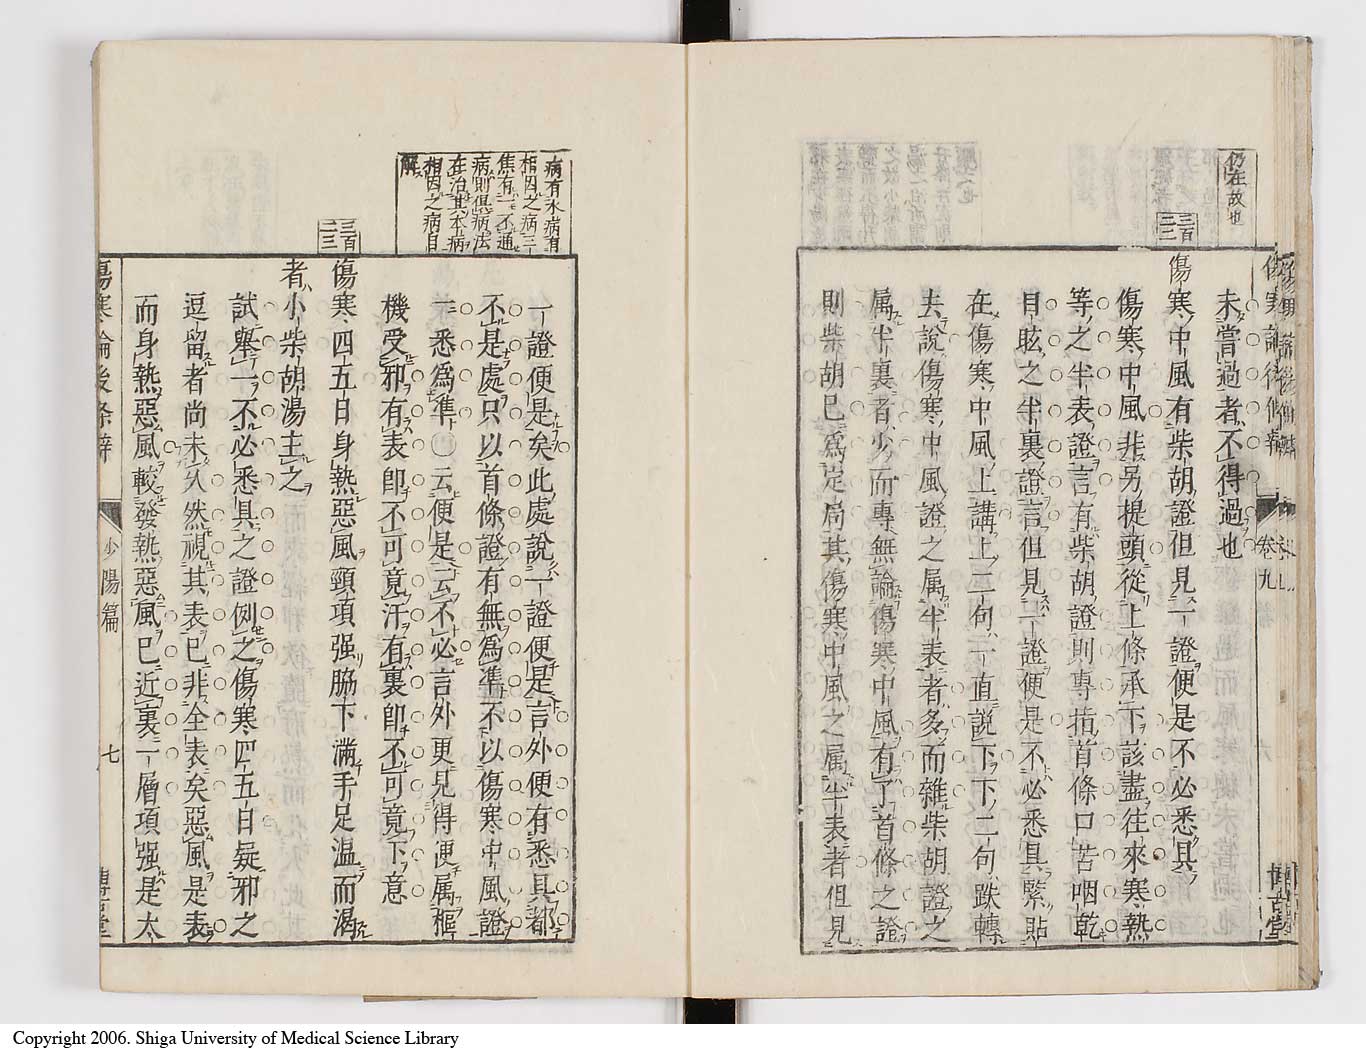 仍在故也
三百二三
未嘗過者不得過也
傷寒中風有柴胡證但見一證便是不必悉具
傷寒中風非另提頭從上條承下該盡往來寒熱
等之半表證言有柴胡證則專指首條口苦咽乾
目眩之半裏證言但見一證便是不必悉具緊貼
在傷寒中風上講上二句一直說下下二句跌轉
去說傷寒中風證之属半表者多而雜柴胡證之
属半裏者少而專無論傷寒中風有了首條之證
則柴胡已為定局其傷寒中風之属半表者但見
卷九
病有本病有
相因之病三
焦有一不通
病則俱病法
在治其本病
相因之病自
解
三百二三
一證便是矣此處說一證便是言外便有悉具都
不是處只以首條證有無爲準不以傷寒中風證
一悉爲準〇云便是云不必言外更見得便属樞
機受邪有表即不可竟汗有裏即不可竟下意
傷寒四五日身熱惡風頸項强脇下滿手足温而渴
者小柴胡湯主之
試舉一不必悉具之證例之傷寒四五日疑邪之
逗留者尚未久然視其表已非全表矣惡風是表
而身熱惡風較發熱惡風已近裏一層項强是太
傷寒論後條辨
少陽篇
七
Copyright 2006. Shiga University of Medical Science Library